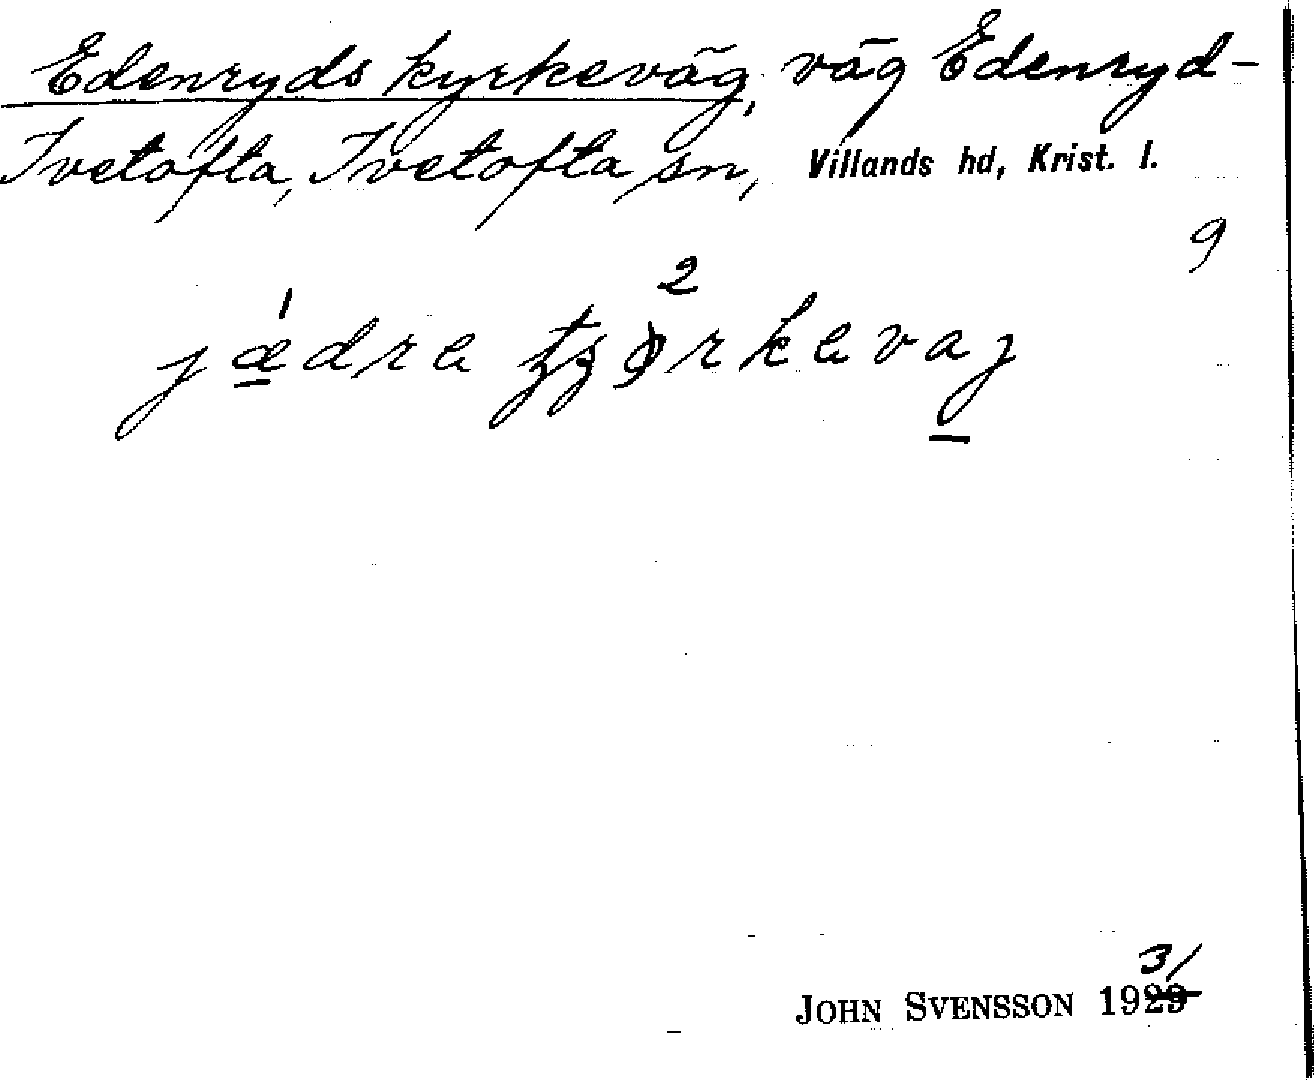 Edenryds kyrkeväg, väg Edenryd-
Ivetofta, Ivetofta sn, Villands hd, Krist. l.
9
2
JOHN SVENSSON 1923
31